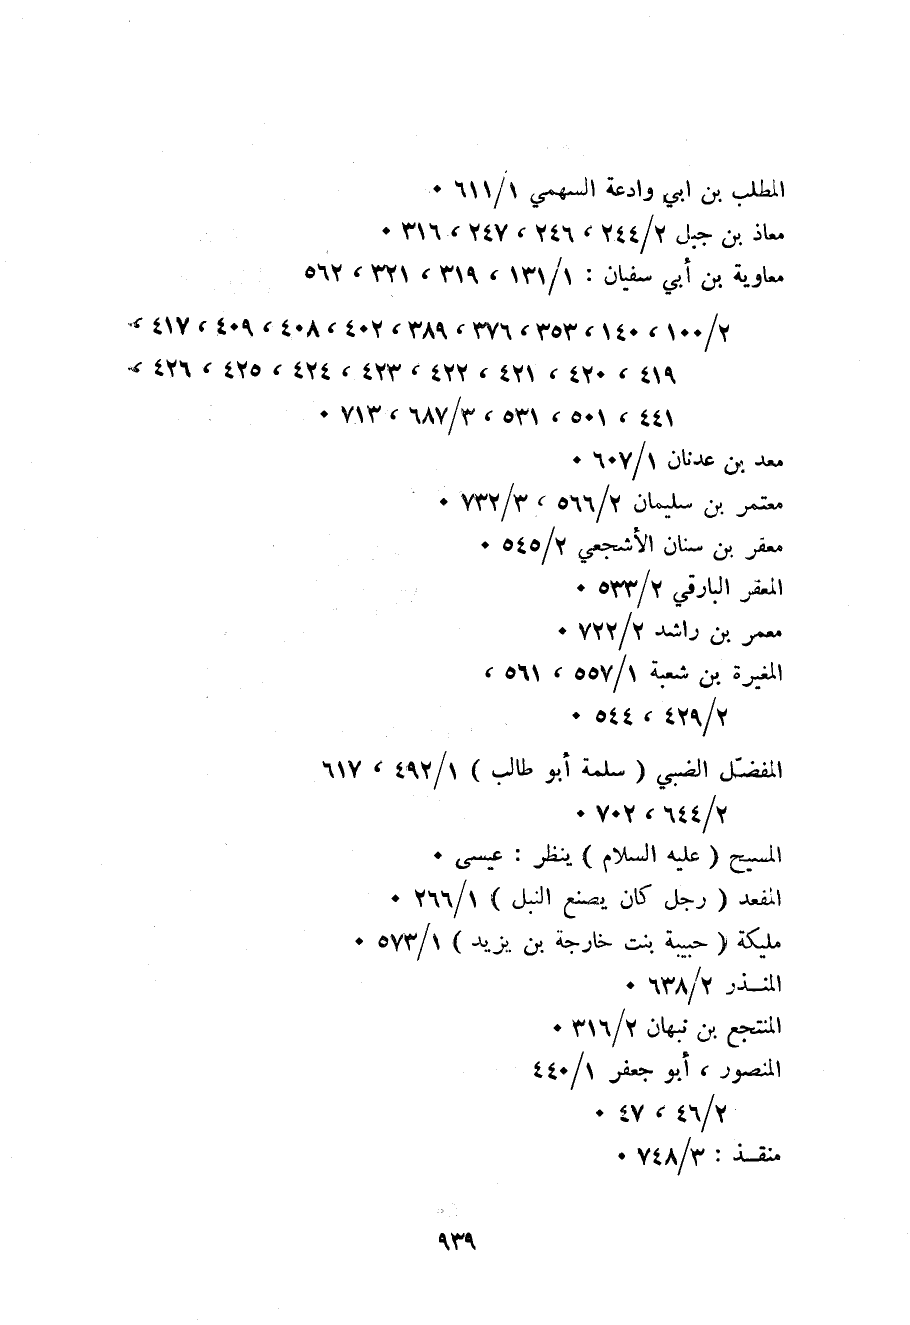 المطلب بن ابي وادعة السهمي ٦١١/١ ٠
معاذ بن جبل ٢٤٤/٢ ، ٢٤٦ ، ٢٤٧ ، ٣١٦ ٠
معاوية بن أبي سفيان : ١٣١/١ ، ٣١٩ ، ٣٢١ ، ٥٦٢
١٠٠/٢ ، ١٤٠ ، ٣٥٣ ، ٣٧٦ ، ٣٨٩ ، ٤٠٢ ، ٤٠٨ ، ٤٠٩ ، ٤١٧ ،
٤١٩ ، ٤٢٠ ، ٤٢١ ، ٤٢٢ ، ٤٢٣ ، ٤٢٤ ، ٤٢٥ ، ٤٢٦ ،
٤٤١ ، ٥٠١ ، ٥٣١ ، ٦٨٧/٣ ، ٧١٣ ٠
معد بن عدنان ٦٠٧/١ ٠
معتمر بن سليمان ٥٦٦/٢ ، ٧٣٢/٣ ٠
معقر بن سنان الأشجعي ٥٤٥/٢ ٠
المعقر البارقي ٥٣٣/٢ ٠
معمر بن راشد ٧٢٢/٢ ٠
المغيرة بن شعبة ٥٥٧/١ ، ٥٦١ ،
٤٢٩/٢ ، ٥٤٤ ٠
المفضّل الضبي ( سلمة أبو طالب ) ٤٩٢/١ ، ٦١٧
٦٤٤/٢ ، ٧٠٢ ٠
المسيح ( عليه السلام ) ينظر : عيسى ٠
المفعد ( رجل كان يصنع النبل ) ٢٦٦/١ ٠
مليكة ( حبيبة بنت خارجة بن يزيد ) ٥٧٣/١ ٠
المنـذر ٦٣٨/٢ ٠
المنتجع بن نبهان ٣١٦/٢ ٠
المنصور ، أبو جعفر ٤٤٠/١
٤٦/٢ ، ٤٧ ٠
منقـذ : ٧٤٨/٣ ٠
٩٣٩